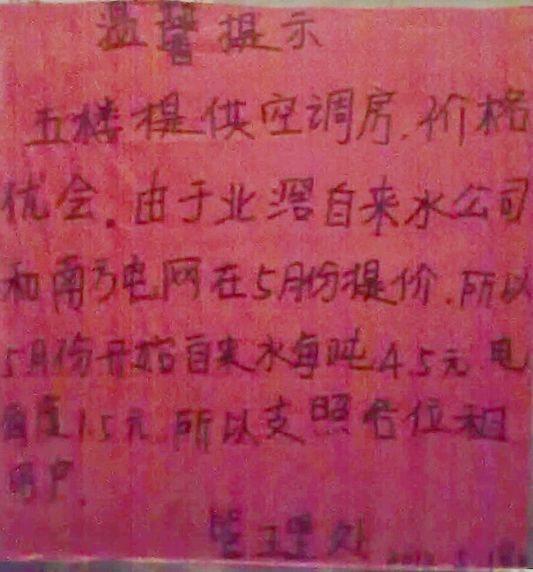 温馨提示
五楼提供空调房,价格
优会。由于北滘自来水公司
和南方电网在5月份提价.所以
5月份开始自来水每吨4.5元 电
每度1.5元.所以支照各位租
用户.
管理处